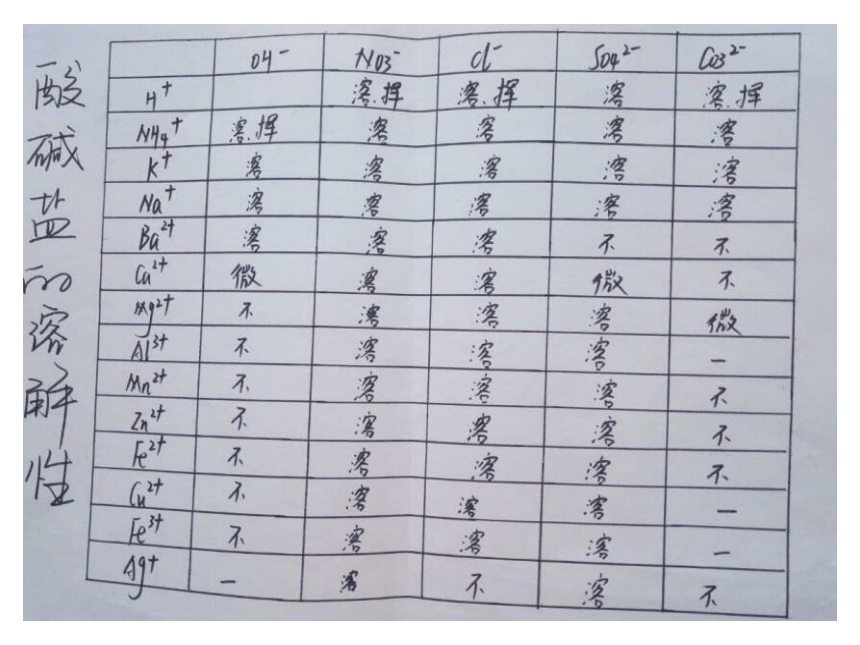 酸碱盐的溶解性
OH⁻ NO3⁻ Cl⁻ SO4²⁻ CO3²⁻
H⁺ 溶.挥 溶.挥 溶 溶.挥
NH4⁺ 溶.挥 溶 溶 溶 溶
K⁺ 溶 溶 溶 溶 溶
Na⁺ 溶 溶 溶 溶 溶
Ba²⁺ 溶 溶 溶 不 不
Ca²⁺ 微 溶 溶 微 不
Mg²⁺ 不 溶 溶 溶 微
Al³⁺ 不 溶 溶 溶 —
Mn²⁺ 不 溶 溶 溶 不
Zn²⁺ 不 溶 溶 溶 不
Fe²⁺ 不 溶 溶 溶 不
Cu²⁺ 不 溶 溶 溶 —
Fe³⁺ 不 溶 溶 溶 —
Ag⁺ — 溶 不 溶 不